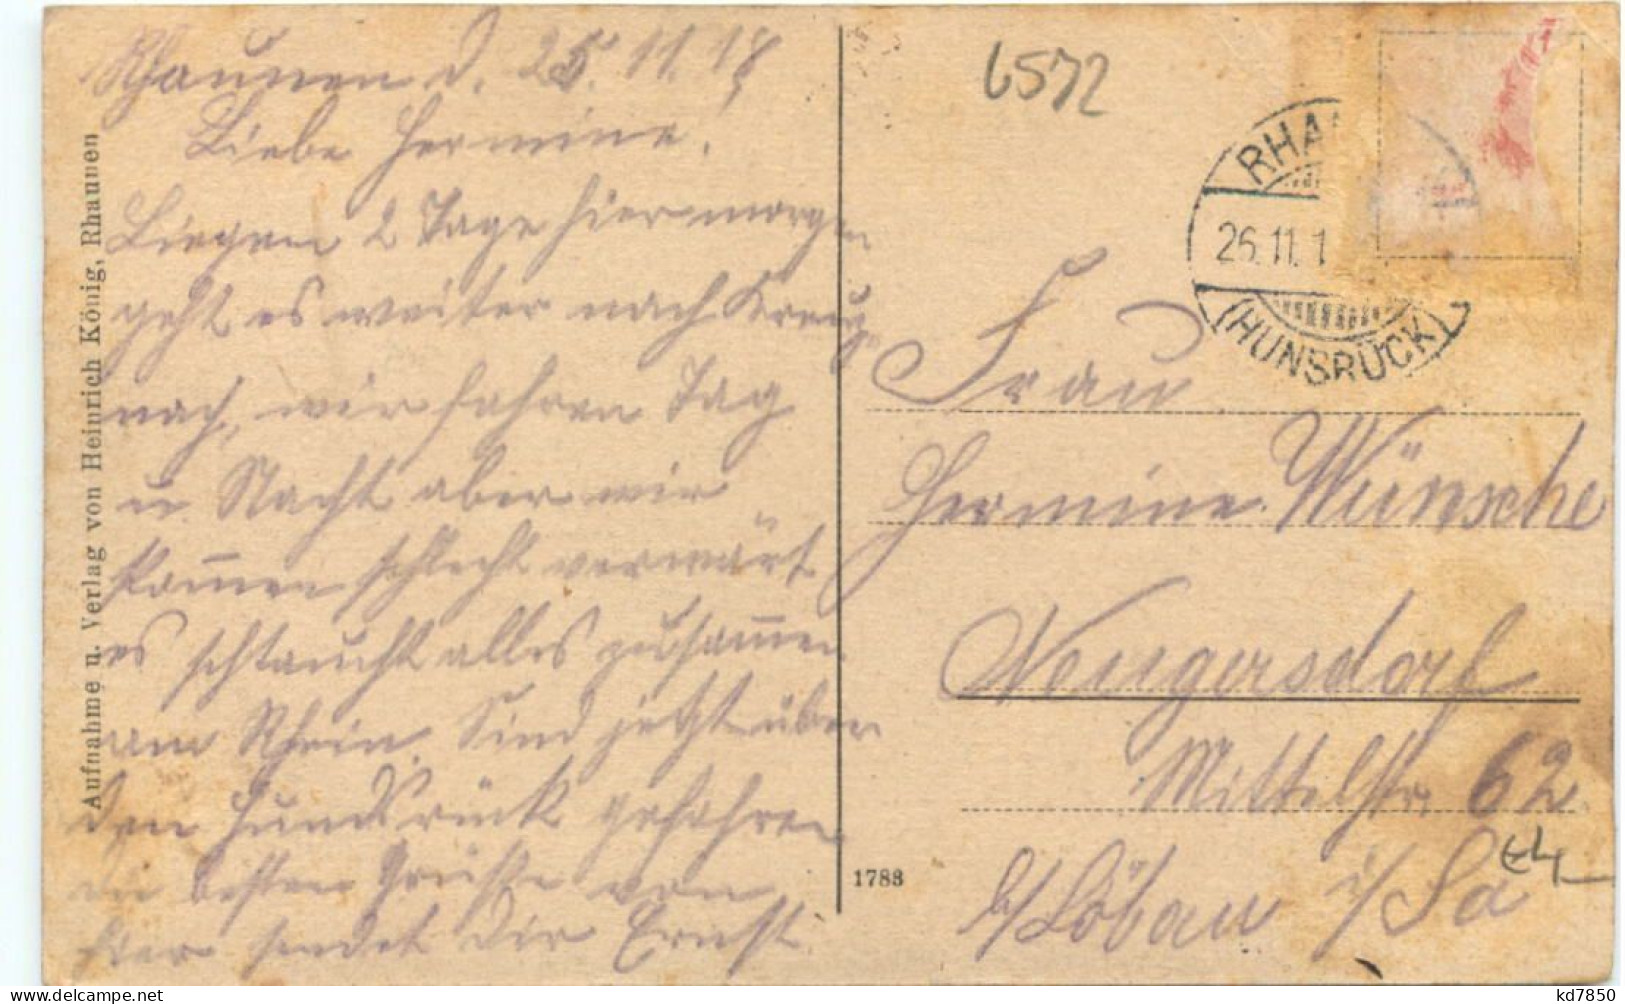 Rhaunen d. 25.11.18
Liebe Hermine!
Liegen 2 Tage hier morgen
geht es weiter nach Kreuz-
nach, wir fahren Tag
u. Nacht aber wir
kom̄en schlecht verwärt
es schtaucht alles zusam̄en
am Rhein. Sind jetzt über
den Hundsrück gefahren
die besten Grüße von
hier sendet Dir Ernst
Aufnahme u. Verlag von Heinrich König, Rhaunen
1788
6572
RHAU
26.11.1
(HUNSRÜCK)
Frau
Hermine Wünsche
Neugersdorf
Mittelstr. 62
b/Löbau i/Sa
kd7850